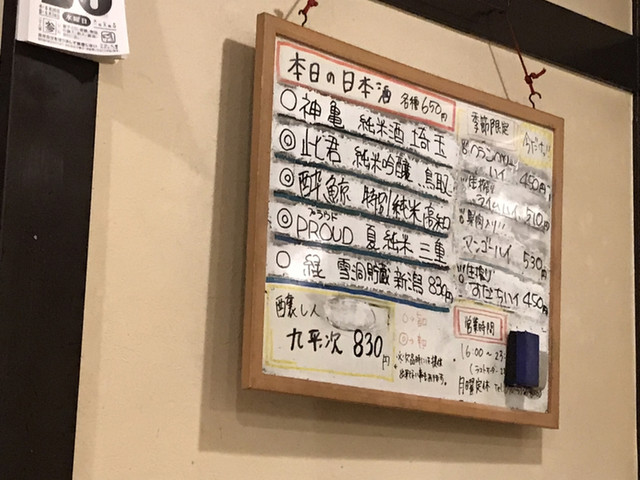 水曜日
本日の日本酒 各種650円
○神亀 純米酒 埼玉
◎此君 純米吟醸 鳥取
◎酔鯨 特別純米 高知
プラウド
◎PROUD 夏純米 三重
○ 縁 雪洞貯蔵 新潟 830円
醸し人
九平次 830円
季節限定
ハイ 450円
生搾り
ライムハイ 510円
果肉入り!!
マンゴーハイ 530円
生搾り
すだちハイ 450円
営業時間
16:00～23:
月曜定休 Tel